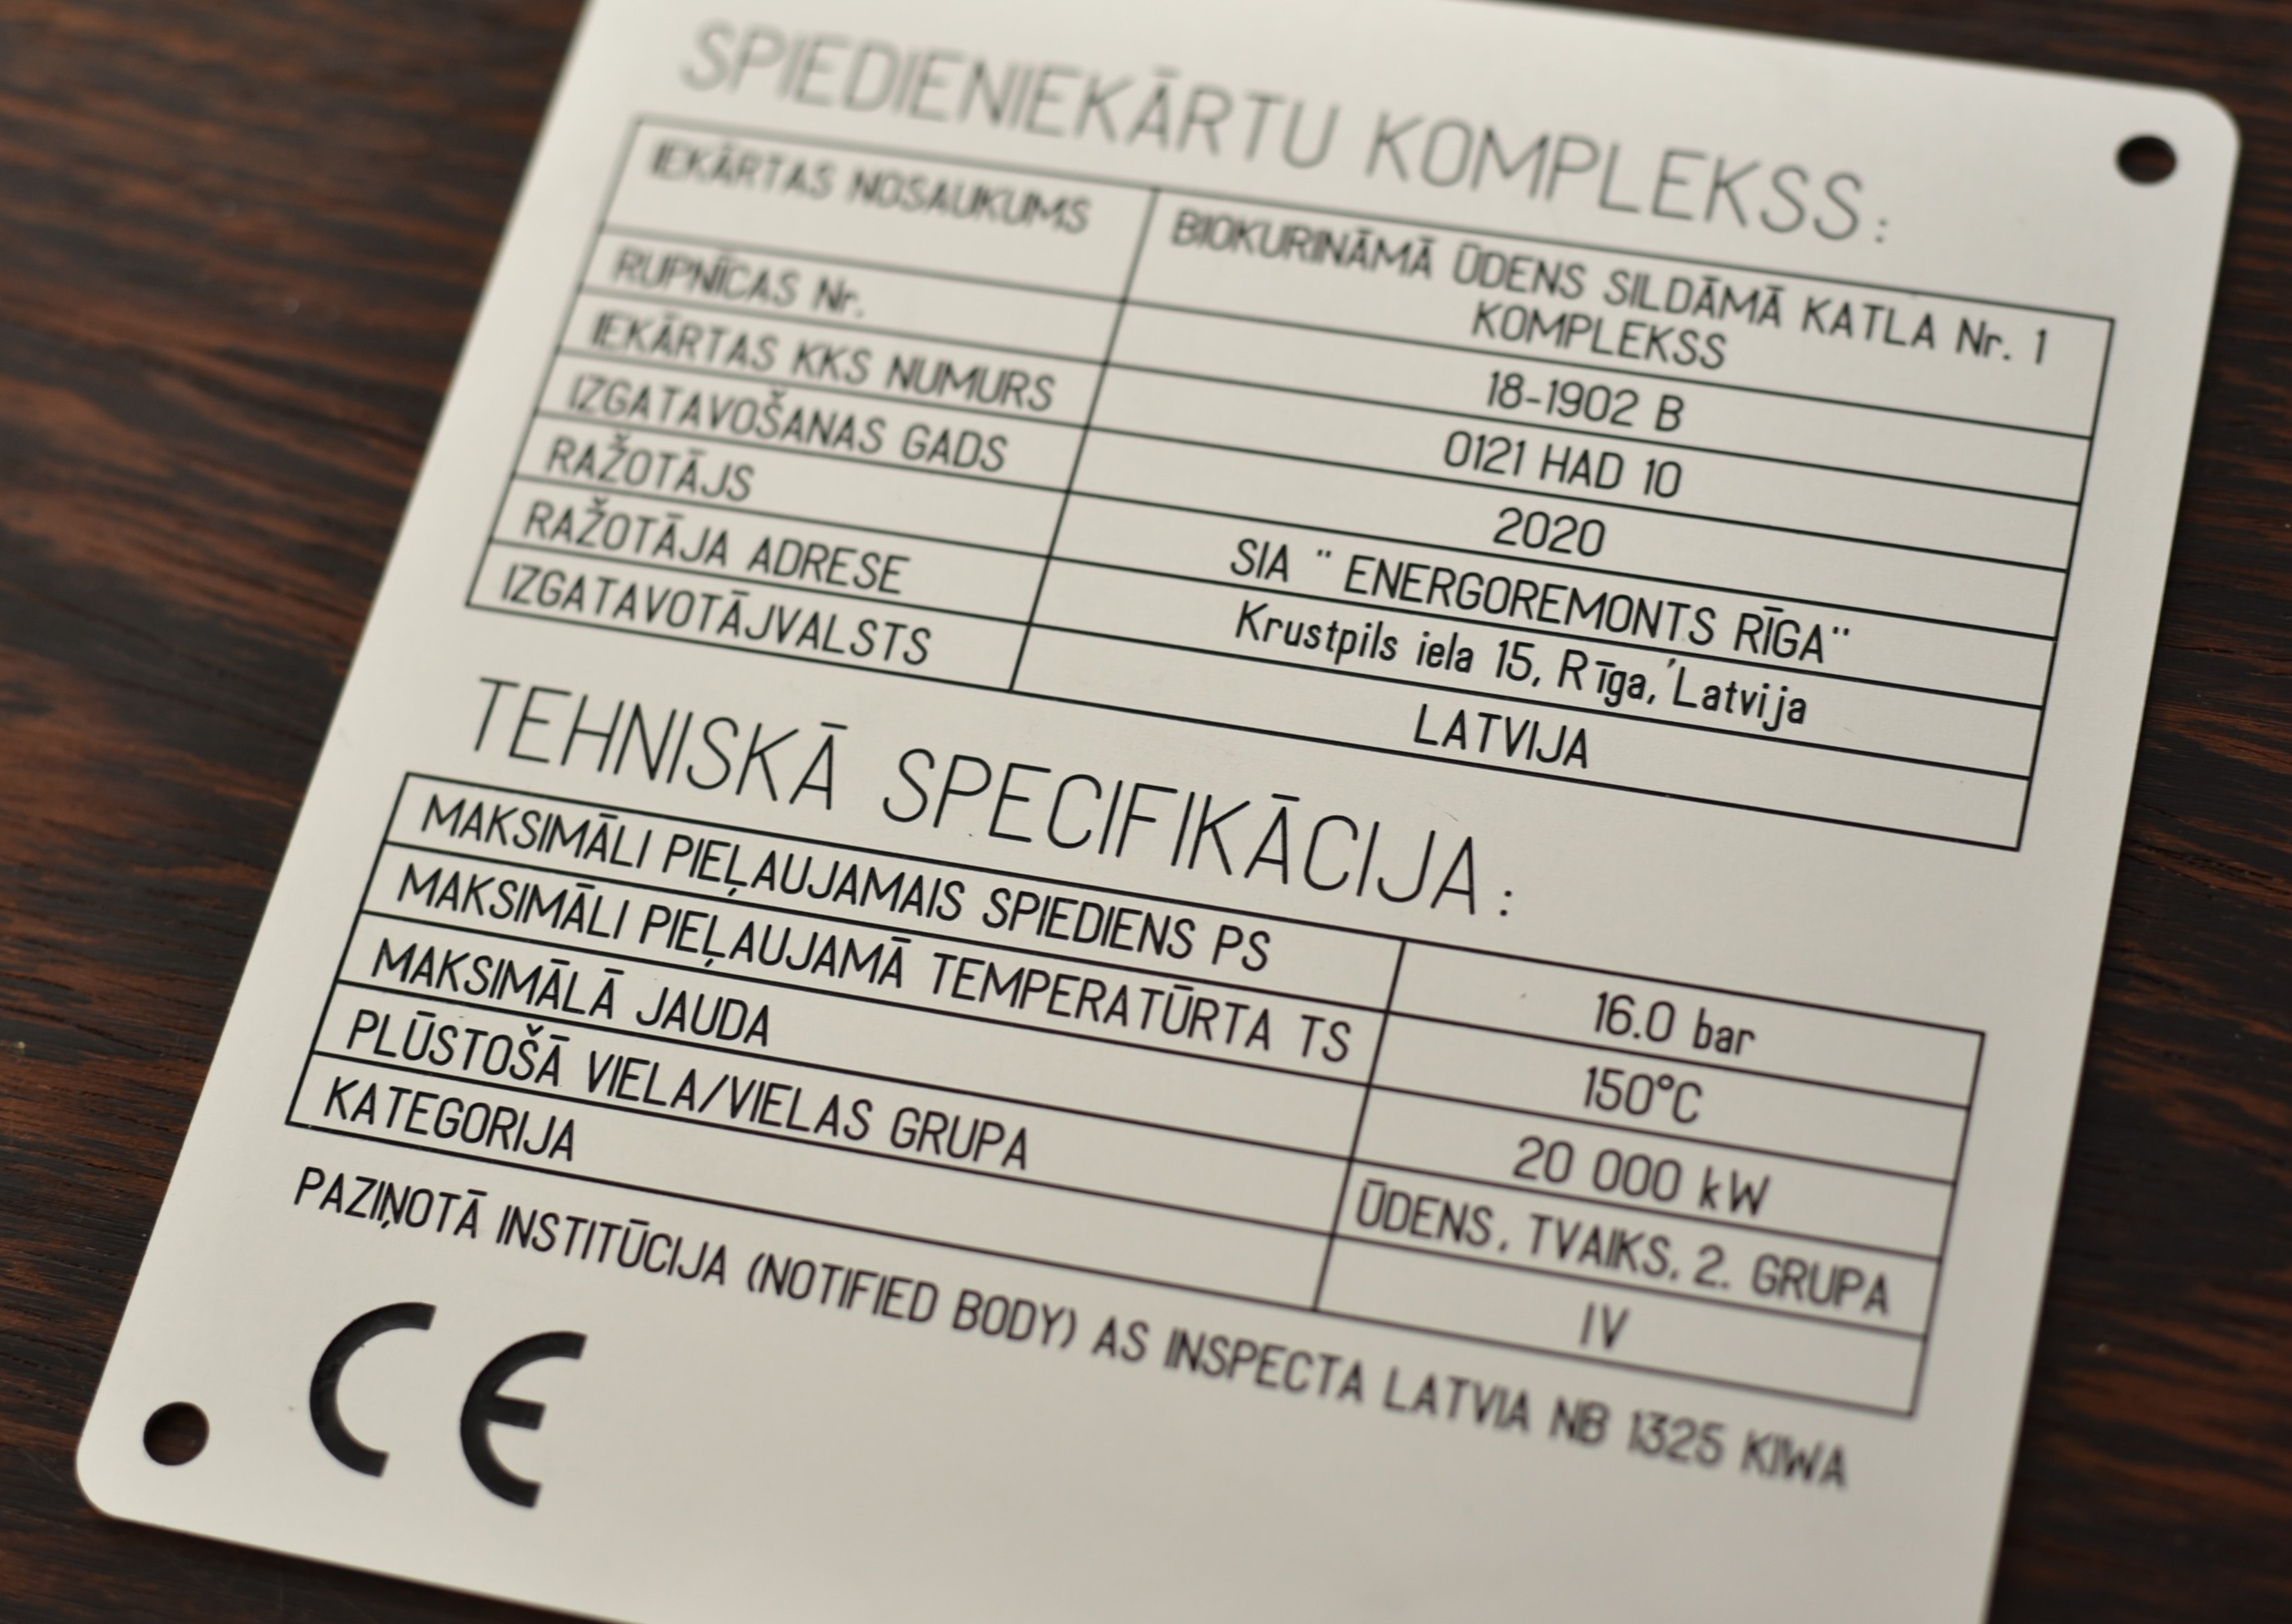 SPIEDIENIEKĀRTU KOMPLEKSS:
IEKĀRTAS NOSAUKUMS BIOKURINĀMĀ ŪDENS SILDĀMĀ KATLA Nr. 1
KOMPLEKSS
RUPNĪCAS Nr. 18-1902 B
IEKĀRTAS KKS NUMURS 0121 HAD 10
IZGATAVOŠANAS GADS 2020
RAŽOTĀJS SIA " ENERGOREMONTS RĪGA"
RAŽOTĀJA ADRESE Krustpils iela 15, Rīga, Latvija
IZGATAVOTĀJVALSTS LATVIJA
TEHNISKĀ SPECIFIKĀCIJA:
MAKSIMĀLI PIEĻAUJAMAIS SPIEDIENS PS 16.0 bar
MAKSIMĀLI PIEĻAUJAMĀ TEMPERATŪRTA TS 150°C
MAKSIMĀLĀ JAUDA 20 000 kW
PLŪSTOŠĀ VIELA/VIELAS GRUPA ŪDENS, TVAIKS, 2. GRUPA
KATEGORIJA IV
PAZIŅOTĀ INSTITŪCIJA (NOTIFIED BODY) AS INSPECTA LATVIA NB 1325 KIWA
CE